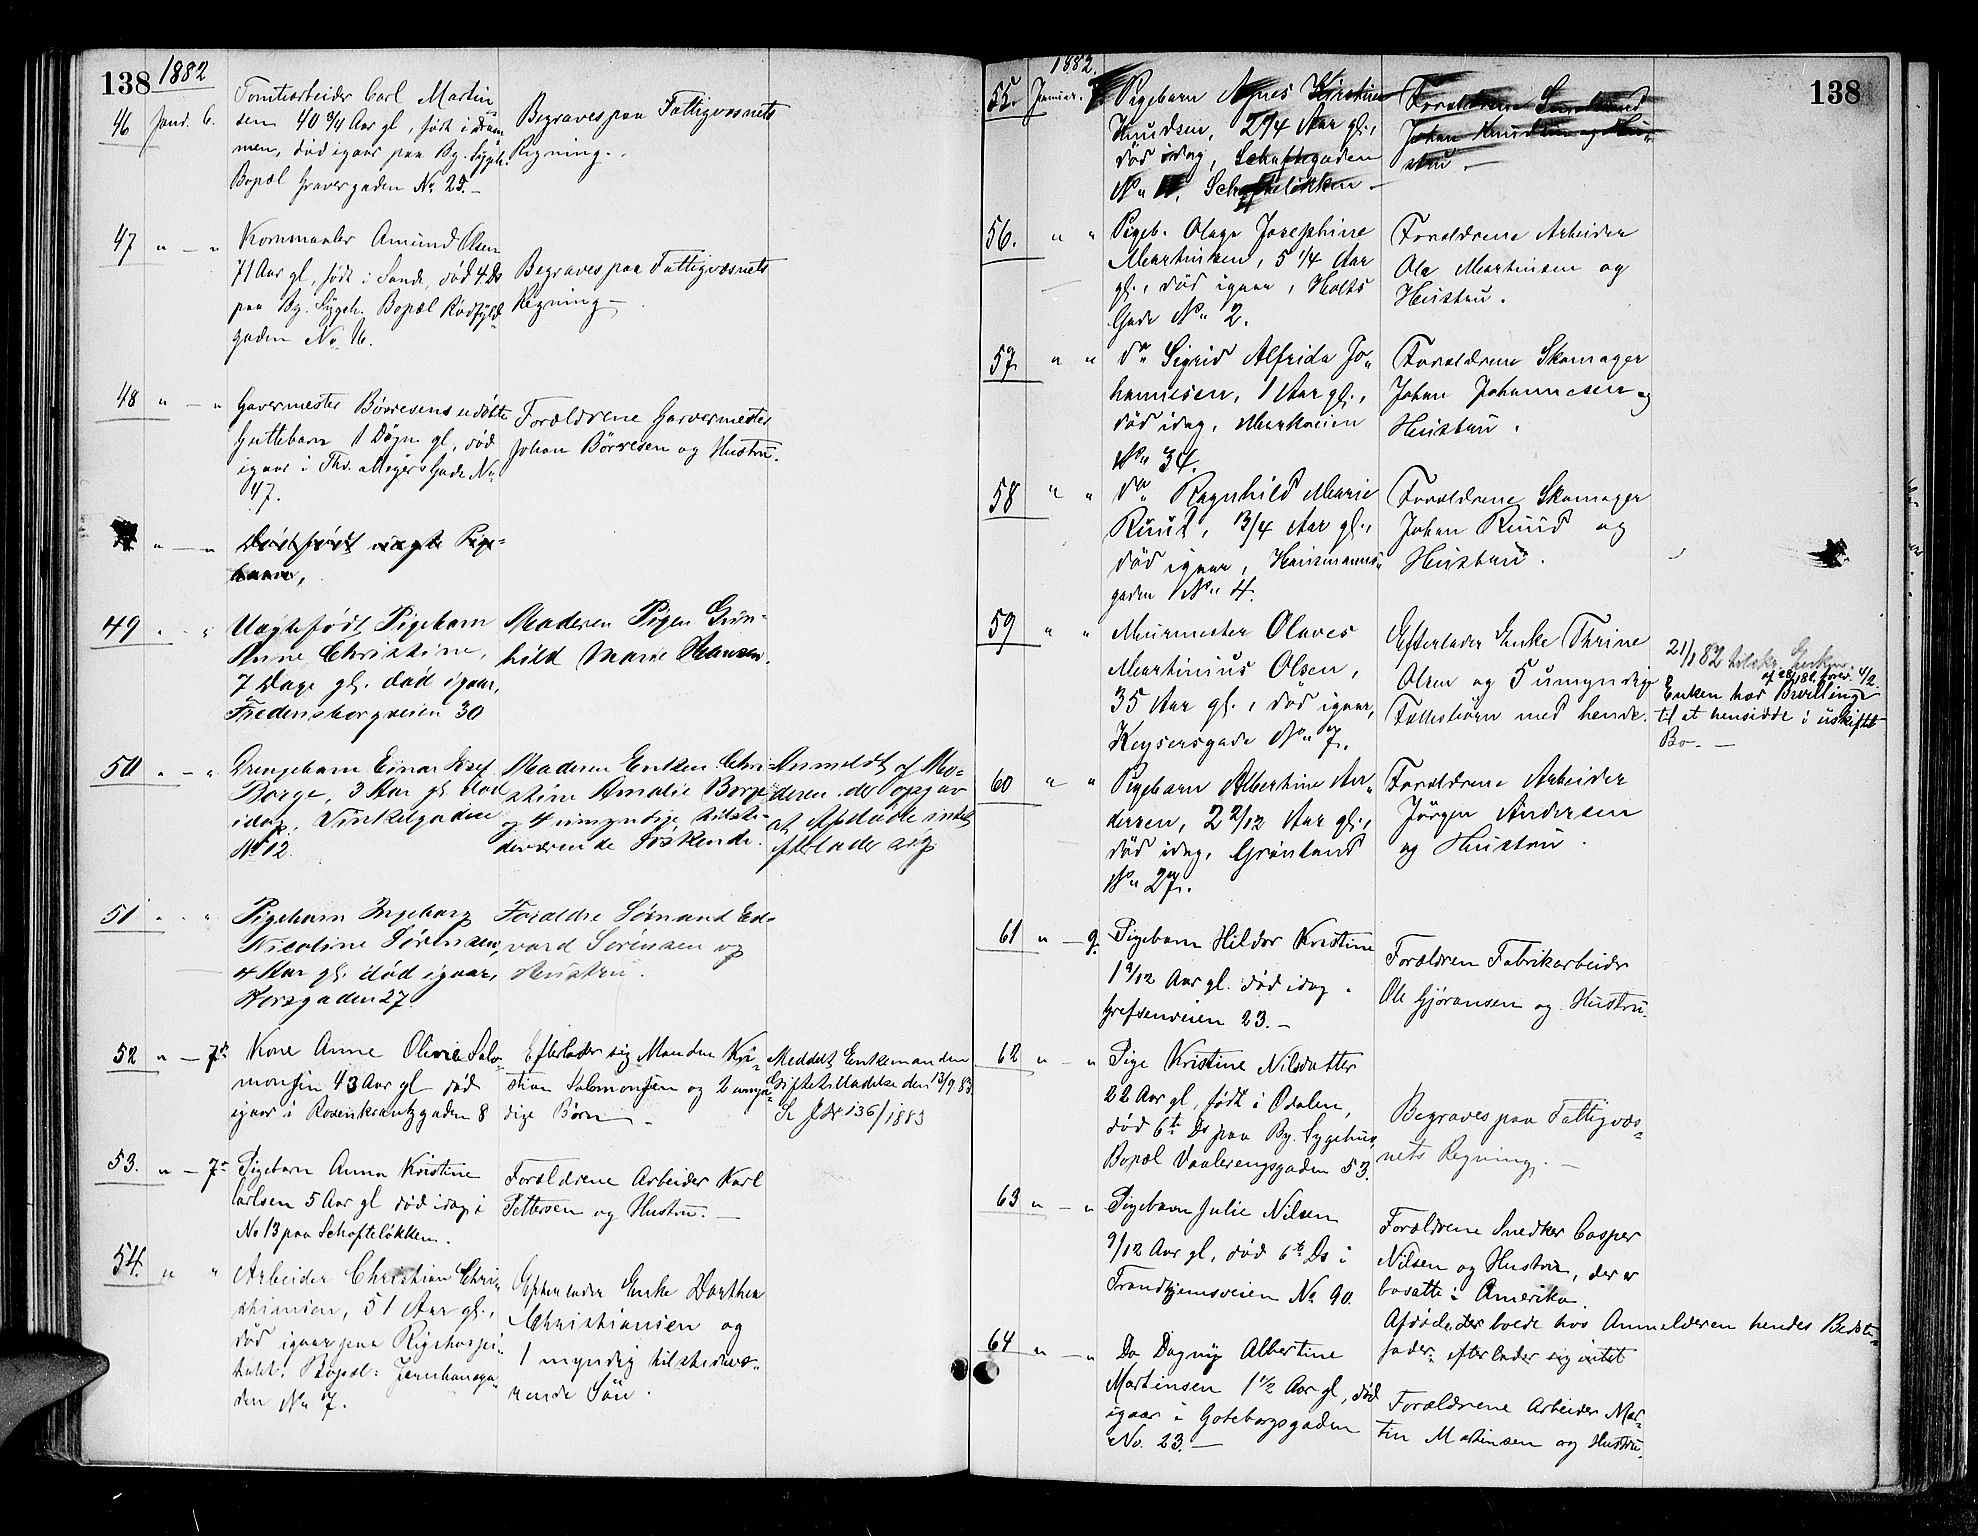 138 1882
46 Janr. 6. Tomtearbeider Carl Martin-
sen 40 3/4 Aar gl, født i Dram
men, død igaar paa By. Sygeh.
Bopæl Gravergaden No 25.-
Begraves paa Fattigvæsnets
Regning.
47 " — " Kornmaaler Amund Olsen
71 Aar gl, født i Sande, død 4. Ds
paa By. Sygeh. Bopæl Rødfyld-
gaden No 16.
Begraves paa Fattigvæsnets
Regning—
48 " — " Garvermester Börresens udøbte
Guttebarn 1 Døgn gl, død
igaar i Thv. Meyers Gade No
47.
Forældrene Garvermester
Johan Börresen og Hustru.
" — " Dødfødt uægte Pige-
barn,
49 " — " Uægtefødt Pigebarn
Anne Christine,
7 Dage gl. død igaar,
Fredensborgveien 30
Moderen Pigen Gun-
hild Marie Hansen.
50 " — " Drengebarn Einar Josef
Borge, 3 Aar gl. død
idag, Vinkelgaden
No 12.
Moderen Enken Chri-
stine Amalie Borge
og 4 umyndige tilste-
deværende Søskende.
Anmeldt af Mo-
deren der opgav
at Afdøde intet
efterlader sig.
51 " " Pigebarn Ingeborg
Nicoline Sørensen,
4 Aar gl. død igaar,
Torvgaden 27
Forældre Sømand Ed-
vard Sørensen og
Hustru.
52 " — 7de Kone Anne Olivie Salo-
monsen 43 Aar gl død
igaar i Rosenkrantzgaden 8
Efterlader sig Manden Kri-
stian Salomonsen og 2 umyn-
dige Børn —
Meddelt Enkemanden
Giftetilladelse den 13/9 83.
Se Jdr 136/1883
53. " — 7de Pigebarn Anna Kristine
Carlsen 5 Aar gl død idag i
No 13 paa Schafteløkken.
Forældrene Arbeider Karl
Pettersen og Hustru. —
54. " " Arbeider Christian Chri-
stiansen, 51 Aar gl.,
død igaar paa Rigshospi-
talet. Bopæl: Jernbanega-
den No 7.
Efterlader Enke Dorthea
Christiansen og
1 myndig tilstedevæ-
rende Søn.
1882. 138
55. Januar. 7. Pigebarn Agnes Kirstine
Knudsen, 2 3/4 Aar gl.,
død idag, Schaftegaden
No 11, Schafteløkken —
Forældrene
Johan Knudsen og Hu-
stru.—
56. " " Pigeb. Olaga Josephine
Martinsen, 5 1/4 Aar
gl., død igaar, Holts
Gade No 2.
Forældrene Arbeider
Ole Martinsen og
Hustru.
57. " " do Sigrid Alfrida Jo-
hannesen, 1 Aar gl.,
død idag, Markveien
No 34.
Forældrene Skomager
Johan Johannesen og
Hustru.
58 " " do Ragnhild Marie
Ruud, 13/4 Aar gl.,
død igaar, Hausmanns-
gaden No 4.
Forældrene Skomager
Johan Ruud og
Hustru.
59 " " Murmester Olaves
Martinius Olsen,
35 Aar gl., død igaar,
Keysersgade No 7.
Efterlader Enke Thrine
Olsen og 5 umyndige
Fællesbørn med hende.
21/1 82 tilskr. Enken.
Enken har Bevilling
til at hensidde i uskiftet
Bo. —
60 " " Pigebarn Albertine An-
dersen, 2 2/12 Aar gl.,
død idag, Grønland
No 27.
Forældrene Arbeider
Jörgen Andersen
og Hustru.
61 " — 9. Pigebarn Hildor Kristine
1 9/12 Aar gl. død idag.
Grefsenveien 23.—
Forældren Fabrikarbeider
Ole Gjøransen og Hustru.
62 " — " Pige Kristine Nilsdatter
22 Aar gl, født i Odalen,
død 6te Ds paa By. Sygehus
Bopæl Vaalerengsgaden 53.
Begraves paa Fattigvæs-
nets Regning. —
63 " — " Pigebarn Julie Nilsen
9/12 Aar gl, død 6te Ds i
Trondhjemsveien No 90.
Forældrene Snedker Casper
Nilsen og Hustru, der er
bosatte i Amerika.
Afdøde der boede hos Anmelderen hendes Bedste-
fader, efterlader sig intet
64 " — " Do Dagny Albertine
Martinsen 1 1/2 Aar gl, død
igaar i Gøteborgsgaden
No. 23.—
Forældrene Arbeider Mar-
tin Martinsen og Hustru.